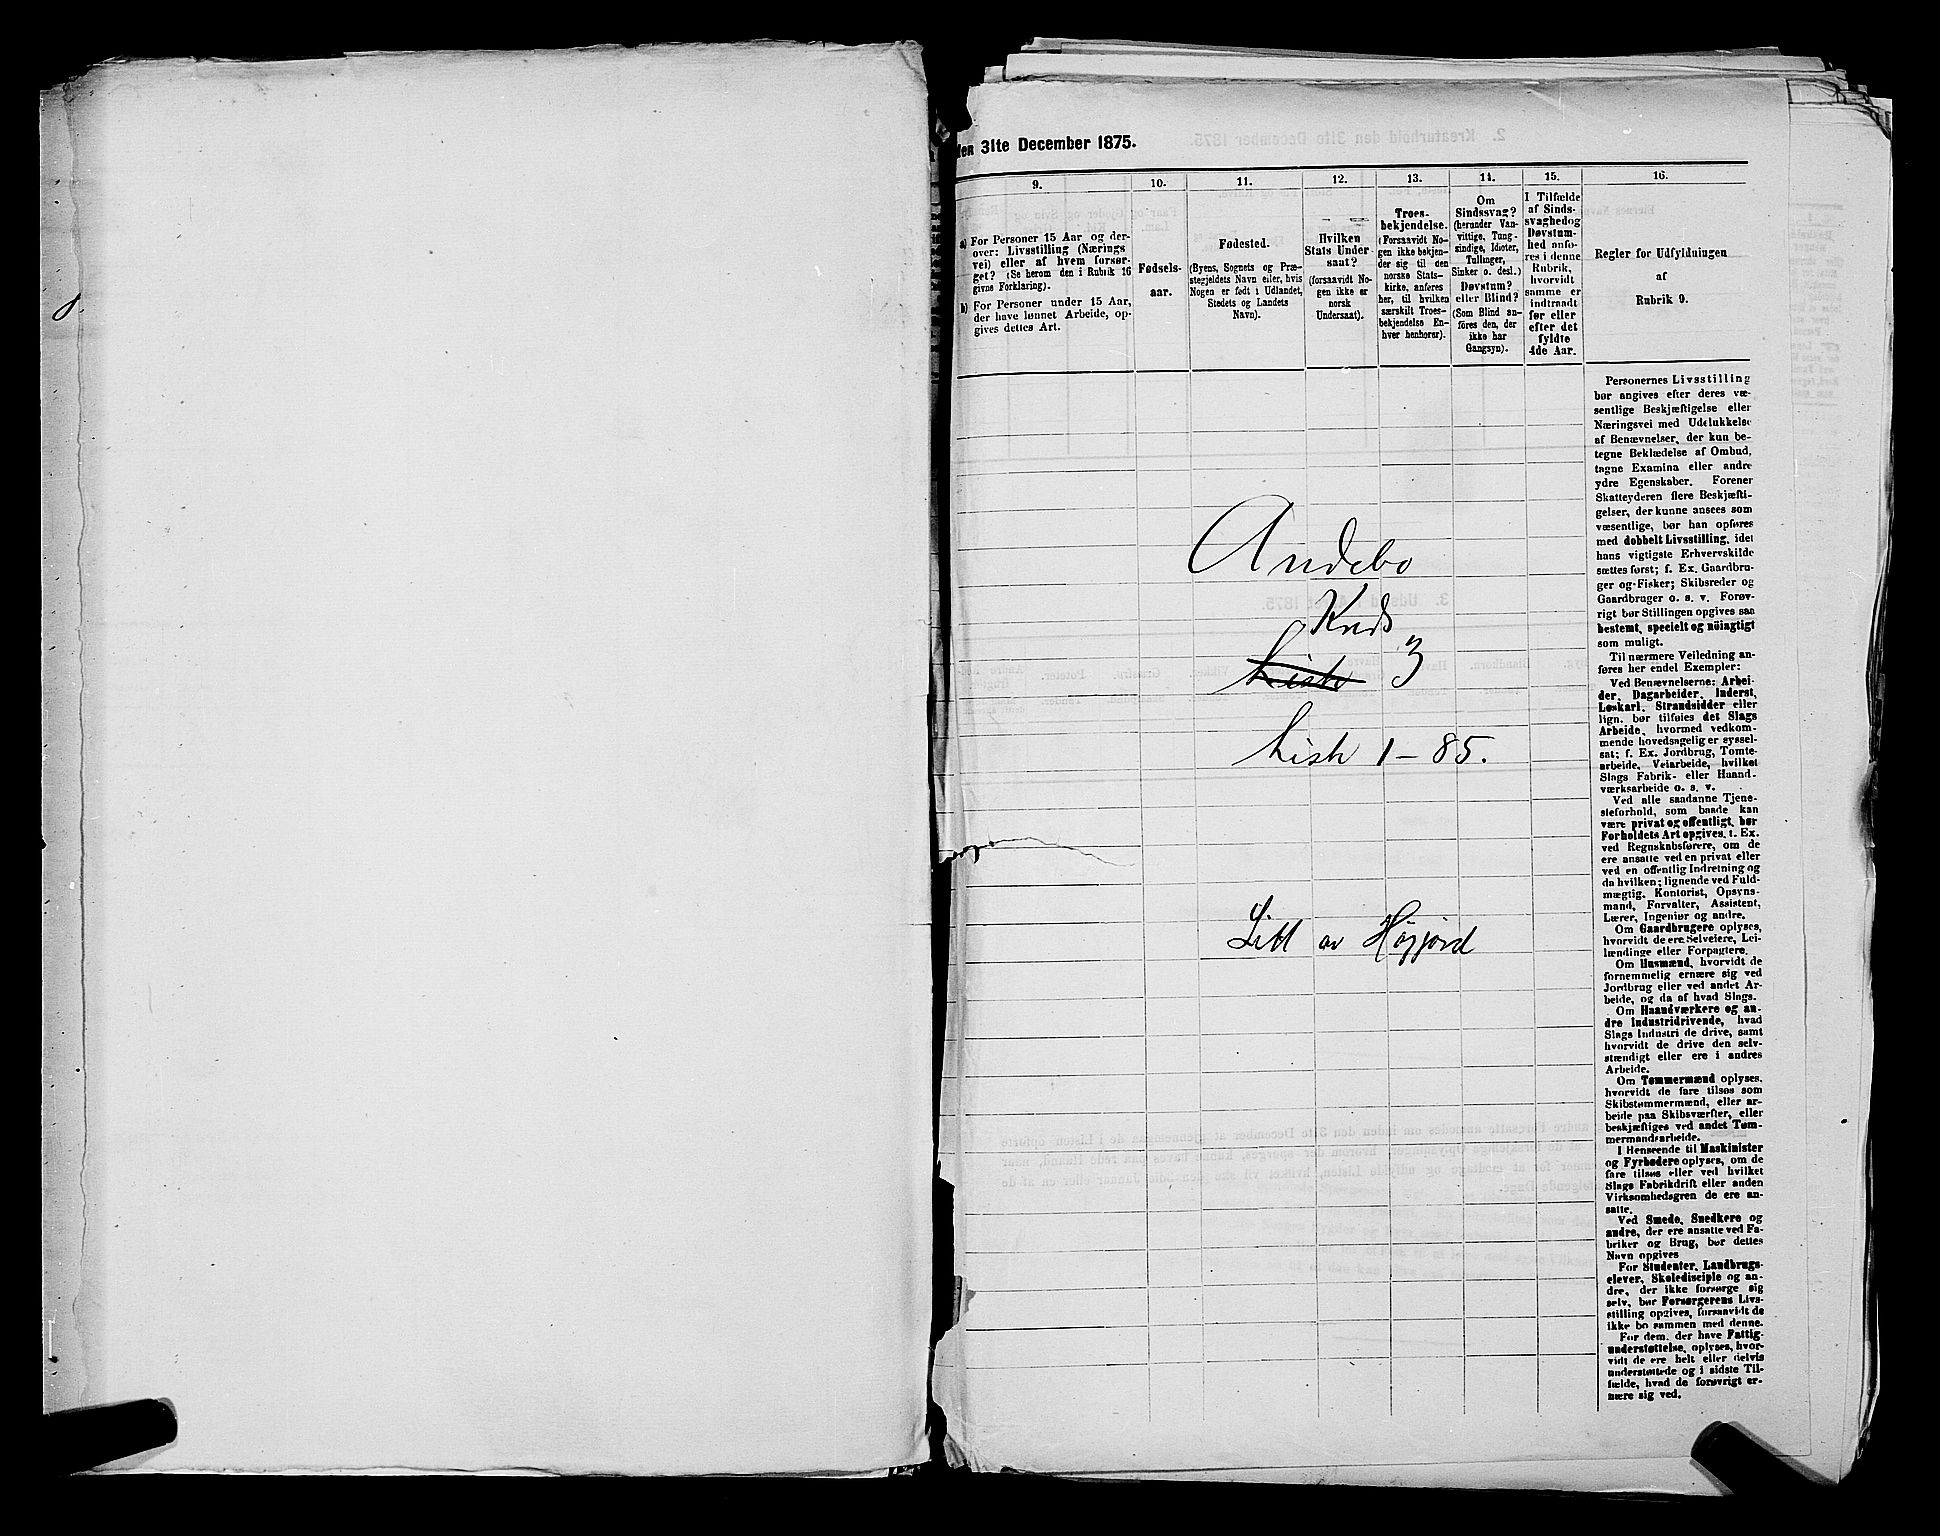 den 31te December 1875.
9.
a) For Personer 15 Aar og der-
over: Livsstilling (Nærings
vei) eller af hvem forsør-
get? (Se herom den i Rubrik 16
givne Forklaring).
b) For Personer under 15 Aar,
der have lønnet Arbeide, op-
gives dettes Art.
10.
Fødsels-
aar.
11.
Fødested.
(Byens, Sognets og Præ-
stegjeldets Navn eller, hvis
Nogen er født i Udlandet,
Stedets og Landets
Navn).
12.
Hvilken
Stats Under
saat?
(forsaavidt No-
gen ikke er
norsk
Undersaat).
13.
Troes-
bekjendelse.
(Forsaavidt No-
gen ikke bekjen-
der sig til den
norske Stats-
kirke, anføres
her, til hvilken
særskilt Troes-
bekjendelse En-
hver henhører).
14.
Om
Sindssvag?
(herunder Van-
vittige, Tung-
sindige, Idioter,
Tullinger,
Sinker o. desl.)
Døvstum?
eller Blind?
(Som Blind an-
føres den, der
ikke har
Gangsyn).
15.
I Tilfælde
af Sinds-
svaghed og
Døvstum-
hed anfø-
res i denne
Rubrik,
hvorvidt
samme er
indtraadt
før eller
efter det
fyldte
4de Aar.
16.
Regler for Udfyldningen
af
Rubrik 9.
Andebo
Krds
Liste 3
Liste 1 - 85.
Litt av Høyjord
Personernes Livsstilling
bør angives efter deres væ-
sentlige Beskjæftigelse eller
Næringsvei med Udelukkelse
af Benævnelser, der kun be-
tegne Beklædelse af Ombud,
tagne Examina eller andre
ydre Egenskaber. Forener
Skatteyderen flere Beskjæfti-
gelser, der kunne ansees som
væsentlige, bør han opføres
med dobbelt Livsstilling, idet
hans vigtigste Erhvervskilde
sættes først; f. Ex. Gaardbru-
ger og Fisker; Skibsreder og
Gaardbruger o. s. v. Forøv-
rigt bør Stillingen opgives saa
bestemt, specielt og nøiagtigt
som muligt.
Til nærmere Veiledning an-
føres her endel Exempler:
Ved Benævnelserne: Arbei-
der, Dagarbeider, Inderst,
Løskarl, Strandsidder eller
lign. bør tilføies det Slags
Arbeide, hvormed vedkom-
mende hovedsagelig er syssel-
sat; f. Ex. Jordbrug, Tomte-
arbeide, Veiarbeide, hvilket
Slags Fabrik- eller Haand-
værksarbeide o. s. v.
Ved alle saadanne Tjene-
steforhold, som baade kan
være privat og offentligt, bør
Forholdets Art opgives, f. Ex.
ved Regnskabsførere, om de
ere ansatte ved en privat eller
ved en offentlig Indretning og
da hvilken; lignende ved Fuld-
mægtig, Kontorist, Opsyns-
mand, Forvalter, Assistent,
Lærer, Ingeniør og andre.
Om Gaardbrugere oplyses,
hvorvidt de ere Selveiere, Lei-
lændinge eller Forpagtere.
Om Husmænd, hvorvidt de
fornemmelig ernære sig ved
Jordbrug eller ved andet Ar-
beide, og da af hvad Slags.
Om Haandværkere og an-
dre Industridrivende, hvad
Slags Industri de drive, samt
hvorvidt de drive den selv-
stændigt eller ere i andres
Arbeide.
Om Tømmermænd oplyses,
hvorvidt de fare tilsøs som
Skibstømmermænd, eller ar-
beide paa Skibsværfter, eller
beskjæftiges ved andet Tøm-
mermandsarbeide.
I Henseende til Maskinister
og Fyrbødere oplyses, om de
fare tilsøs eller ved hvilket
Slags Fabrikdrift eller anden
Virksomhedsgren de ere an-
satte.
Ved Smede, Snedkere og
andre, der ere ansatte ved Fa-
briker og Brug, bør dettes
Navn opgives
For Studenter, Landbrugs-
elever, Skoledisciple og an-
dre, der ikke forsørge sig
selv, bør Forsørgerens Livs-
stilling opgives, forsaavidt de
ikke bo sammen med denne.
For dem, der have Fattig-
understøttelse, oplyses, hvor-
vidt de ere helt eller delvis
understøttede og i sidste Til-
fælde, hvad de forøvrigt er-
nære sig ved.